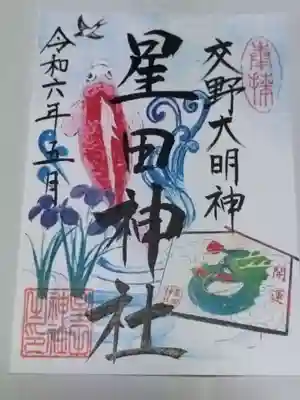 奉拝
交野大明神
星田神社
令和六年五月
開運
星田
神社
之印